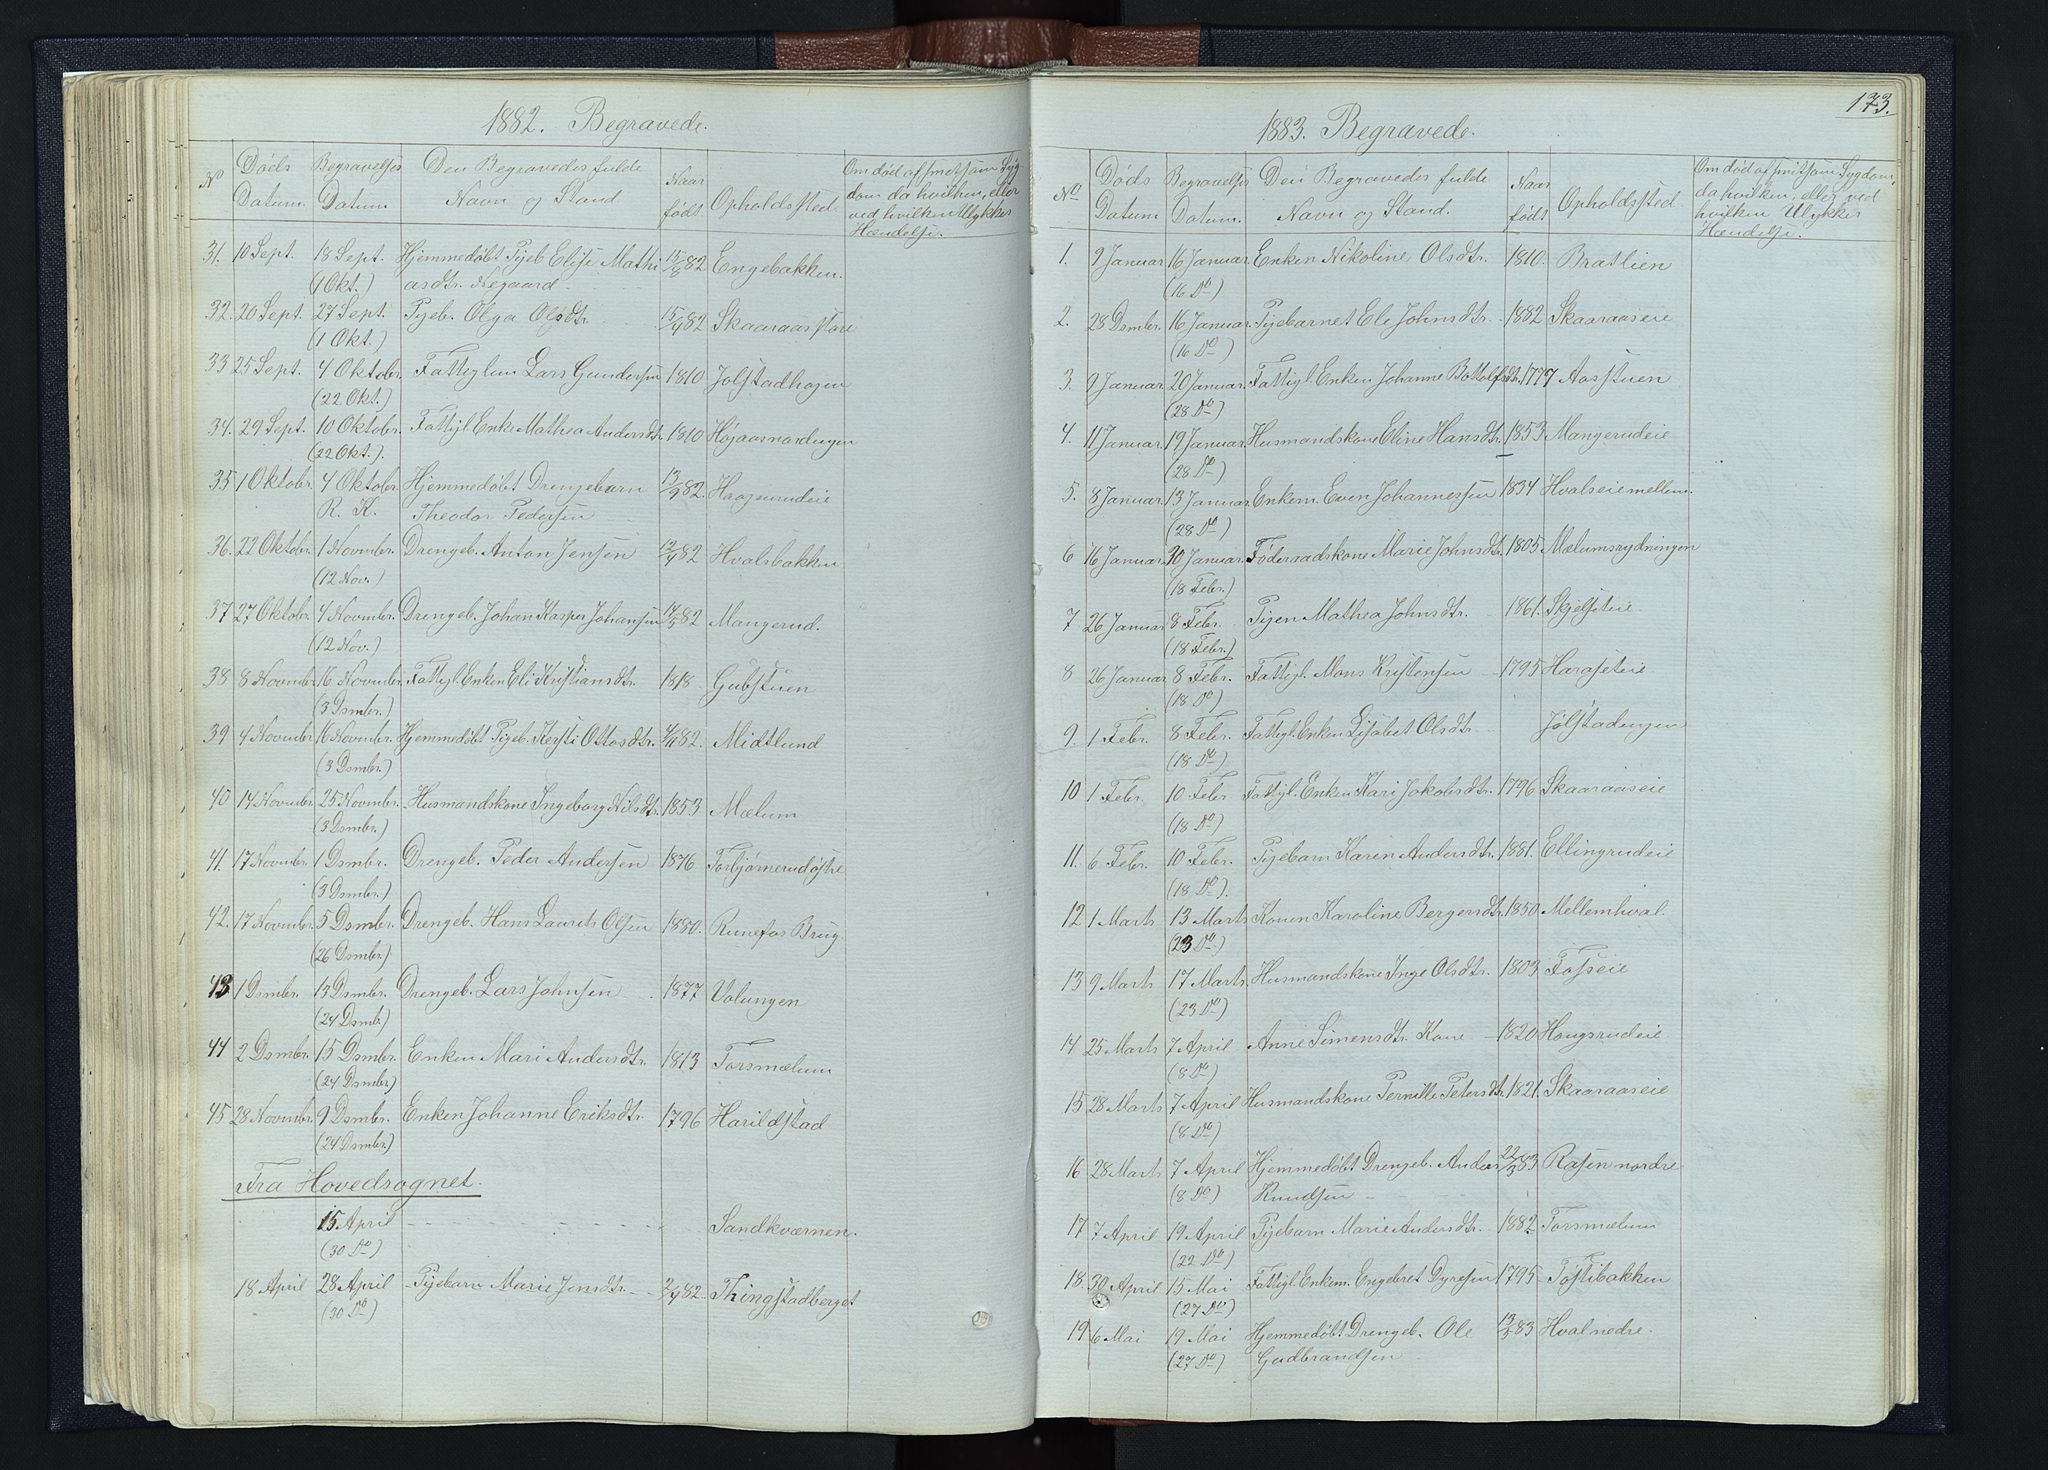 1882. Begravede.
No
Døds Datum.
Begravelses Datum
Den Begravedes fulde Navn og Stand
Naar født
Opholdssted
Om død af smitsom Syg-
dom da hvilken, eller
ved hvilken Ulykkes
Hændelse.
31. 10 Sept. 18 Sept. Hjemmedøbt Pigeb. Elise Mathi 82 Engebakken.
(1 Okt.) asdtr. Negaard
32. 20 Sept. 27 Sept. Pigeb. Olga Olsdtr. 82 Skaaraas
(1 Okt.)
33 25 Sept. 4 Oktobr. Fattiglem Lars Gundersen 1810 Jølstadhagen
(22 Okt.)
34. 29 Sept. 10 Oktobr. Fattigl. Enke Mathea Andersdtr. 1810
(22 Okt.)
35 1 Oktobr. 4 Oktobr. Hjemmedøbt Drengebarn 13/9 82.
R. K. Theodor Pedersen
36. 22 Oktobr. 1 Novmbr. Drengeb. Anton Jensen 82 Hvalsbakken
(12 Nov.)
37 27 Oktobr. 4 Novmbr. Drengeb. Johan Kasper Johansen 82 Mangerud.
(12 Nov.)
38 8 Novmbr. 16 Novmbr. Fattigl. Enken Eli Kristiansdtr. 1818 Gubstuen
(3 Dsmbr.)
39 4 Novmbr. 16 Novmbr. Hjemmedøbt Pigeb. Kersti Ottosdtr. 82. Midtlund
(3 Dsmbr.)
40 14 Novmbr. 25 Novmbr. Husmandskone Ingeborg Nilsdtr. 1853 Mælum
(3 Dsmbr.)
41. 17 Novmbr. 1 Dsmbr. Drengeb. Peder Andersen 1876 Torbjørnerud østre
(3 Dsmbr.)
42. 17 Novmbr. 5 Dsmbr. Drengeb. Hans Laurits Olsen 1880. Runefos Brug.
(26 Dsmbr.)
43 1 Dsmbr. 13 Dsmbr. Drengeb. Lars Johnsen 1877 Volungen
(24 Dsmbr.)
44 2 Dsmbr. 15 Dsmbr. Enken Mari Andersdtr. 1813 Torsmælum
(24 Dsmbr)
45 28 Novmbr. 9 Dsmbr. Enken Johanne Eriksdtr. 1796 Harildstad
(24 Dsmbr.)
Fra Hovedsognet.
15 April Sandkværnen.
(30 Do)
18 April 28 April Pigebarn Marie Jensdtr. 82. Thingstadberget
(30 Do)
173.
1883. Begravede.
No
Døds Datum
Begravelses Datum.
Den Begravedes fulde Navn og Stand.
Naar født
Opholdssted
Om død af smitsom Sygdom,
da hvilken, eller ved
hvilken Ulykkes
Hændelse.
1. 9 Januar 16 Januar. Enken Nikoline Olsdtr. 1810. Bratlien
(16 Do)
2. 28 Dsmbr. 16 Januar. Pigebarnet Eli Johnsdtr. 1882 Skaaraaseie
(16 Do)
3. 9 Januar. 20 Januar. Fattigl. Enken Johanne Bottolfsdtr. 1777 Aasstuen
(28 Do)
4. 11 Januar. 19 Januar. Husmandskone Eline Hansdtr. 1853 Mangerudeie
(28 Do)
5. 8 Januar. 13 Januar. Enkem. Even Johannessen 1834 Hvalseiemellem.
(28 Do)
6 16 Januar. 30 Januar. Føderaadskone Marie Johnsdtr. 1805 Mælumsrydningen
(18 Febr.)
7 26 Januar 8 Febr. Pigen Mathea Johnsdtr. 1861. Skjelseteie
(18 Febr.)
8 26 Januar 8 Febr. Fattigl. Mons Kristensen 1795 Haraseteie
(18 Do)
9. 1 Febr. 8 Febr. Fattigl. Enken Lisabet Olsdtr. Jølstadengen
(18 Do)
10 1 Febr. 10 Febr. Fattigl. Enken Kari Jakobsdtr. 1796 Skaaraaseie
(18 Do)
11. 6 Febr. 10 Febr. Pigebarn Karen Andersdtr. 1881. Ellingrudeie
(18 Do).
12 1 Marts 13 Marts Konen Karoline Bergersdtr. 1850 Mellemhval.
(23 Do)
13 9 Marts 17 Marts Husmandskone Inge Olsdtr. 1803 Fosseie
(23 Do)
14 25 Marts 7 April Anne Simensdtr. Kone 1820 Haugsrudeie
(8 Do)
15 28 Marts 7 April Husmandskone Pernille Petersdtr. 1821. Skaaraaseie
(8 Do)
16 28 Marts 7 April Hjemmedøbt Drengeb. Anders 22/3 83 Rasen nordre
(8 Do) Knudsen
17 7 April 19 April Pigebarn Marie Andersdtr. 1882 Torsmælum
(22 Do)
18 30 April 15 Mai Fattigl. Enkem. Engebret Dyresen 1795 Tøstibakken
(27 Do)
19 6 Mai 19 Mai Hjemmedøbt Drengeb. Ole 83 Hval nedre.
(27 Do) Gudbrandsen